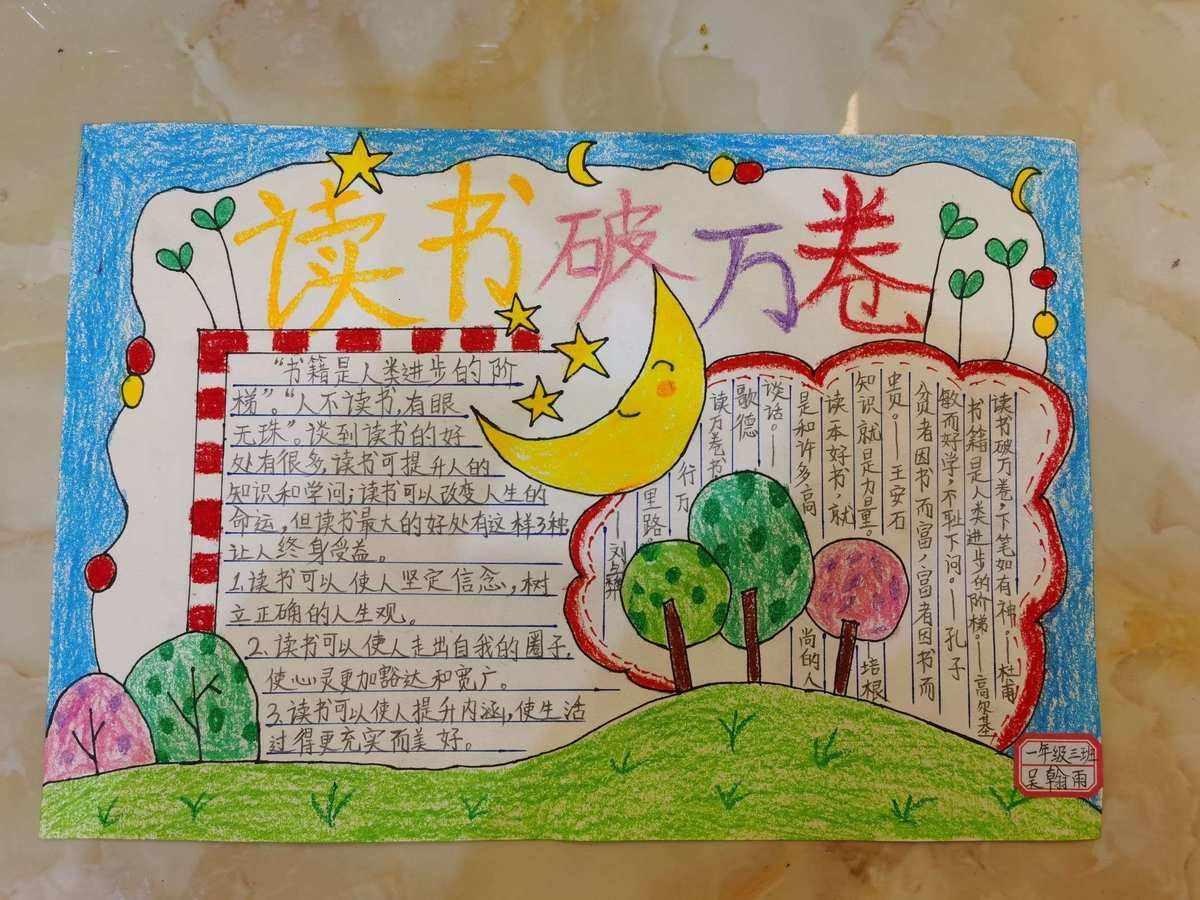 读书破万卷
“书籍是人类进步的阶
梯”。“人不读书，有眼
无珠”。谈到读书的好
处有很多，读书可提升人的
知识和学问；读书可以改变人生的
命运，但读书最大的好处有这样3种，
让人终身受益。
1.读书可以使人坚定信念，树
立正确的人生观。
2.读书可以使人走出自我的圈子，
使心灵更加豁达和宽广。
3.读书可以使人提升内涵，使生活
过得更充实而美好。
读书破万卷，下笔如有神。——杜甫
书籍是人类进步的阶梯。——高尔基
敏而好学，不耻下问。——孔子
贫者因书而富，富者因书而
贵。——王安石
知识就是力量。——培根
读一本好书，就
是和许多高尚的人
谈话。——
歌德
读万卷书
行万
里路
——刘
一年级三班
吴翰雨